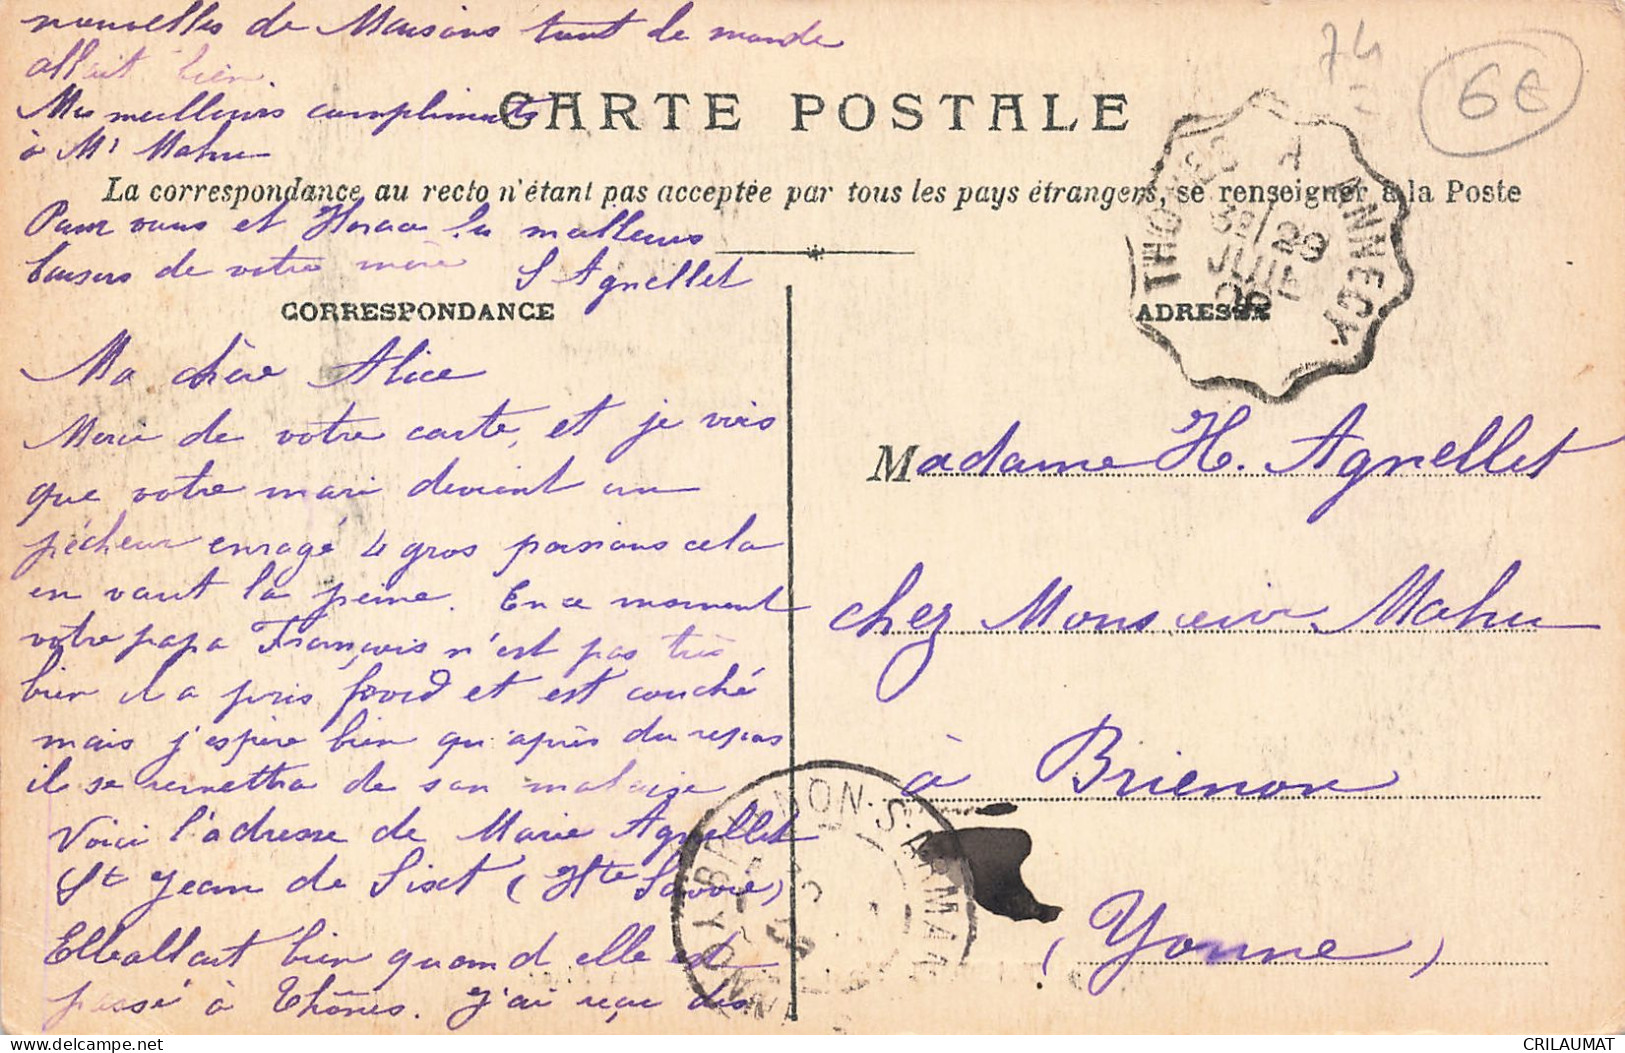 nouvelles de Maisons tout le monde
allait bien.
Mes meilleurs compliments
à Mr Mahu
CARTE POSTALE
La correspondance au recto n'étant pas acceptée par tous les pays étrangers, se renseigner à la Poste
Pour vous et Horace les meilleurs
baisers de votre mère S Agnellet
CORRESPONDANCE
Ma chère Alice
Merci de votre carte, et je vois
que votre mari devient un
pécheur enragé 4 gros poissons cela
en vaut la peine. En ce moment
votre papa François n'est pas très
bien il a pris froid et est couché
mais j'espère bien qu'après du repos
il se remettra de son malaise
Voici l'adresse de Marie Agnellet
St Jean de Sixt (Hte Savoie)
Elle allait bien quand elle est
passé à Thônes. J'ai reçu des
74
6€
THONES A ANNECY
29
JUIL
ADRESSE
Madame H. Agnellet
chez Monsieur Mahu
à Brienon
(Yonne)
BRIENON-S-ARMANÇON
YONNE
CRILAUMAT